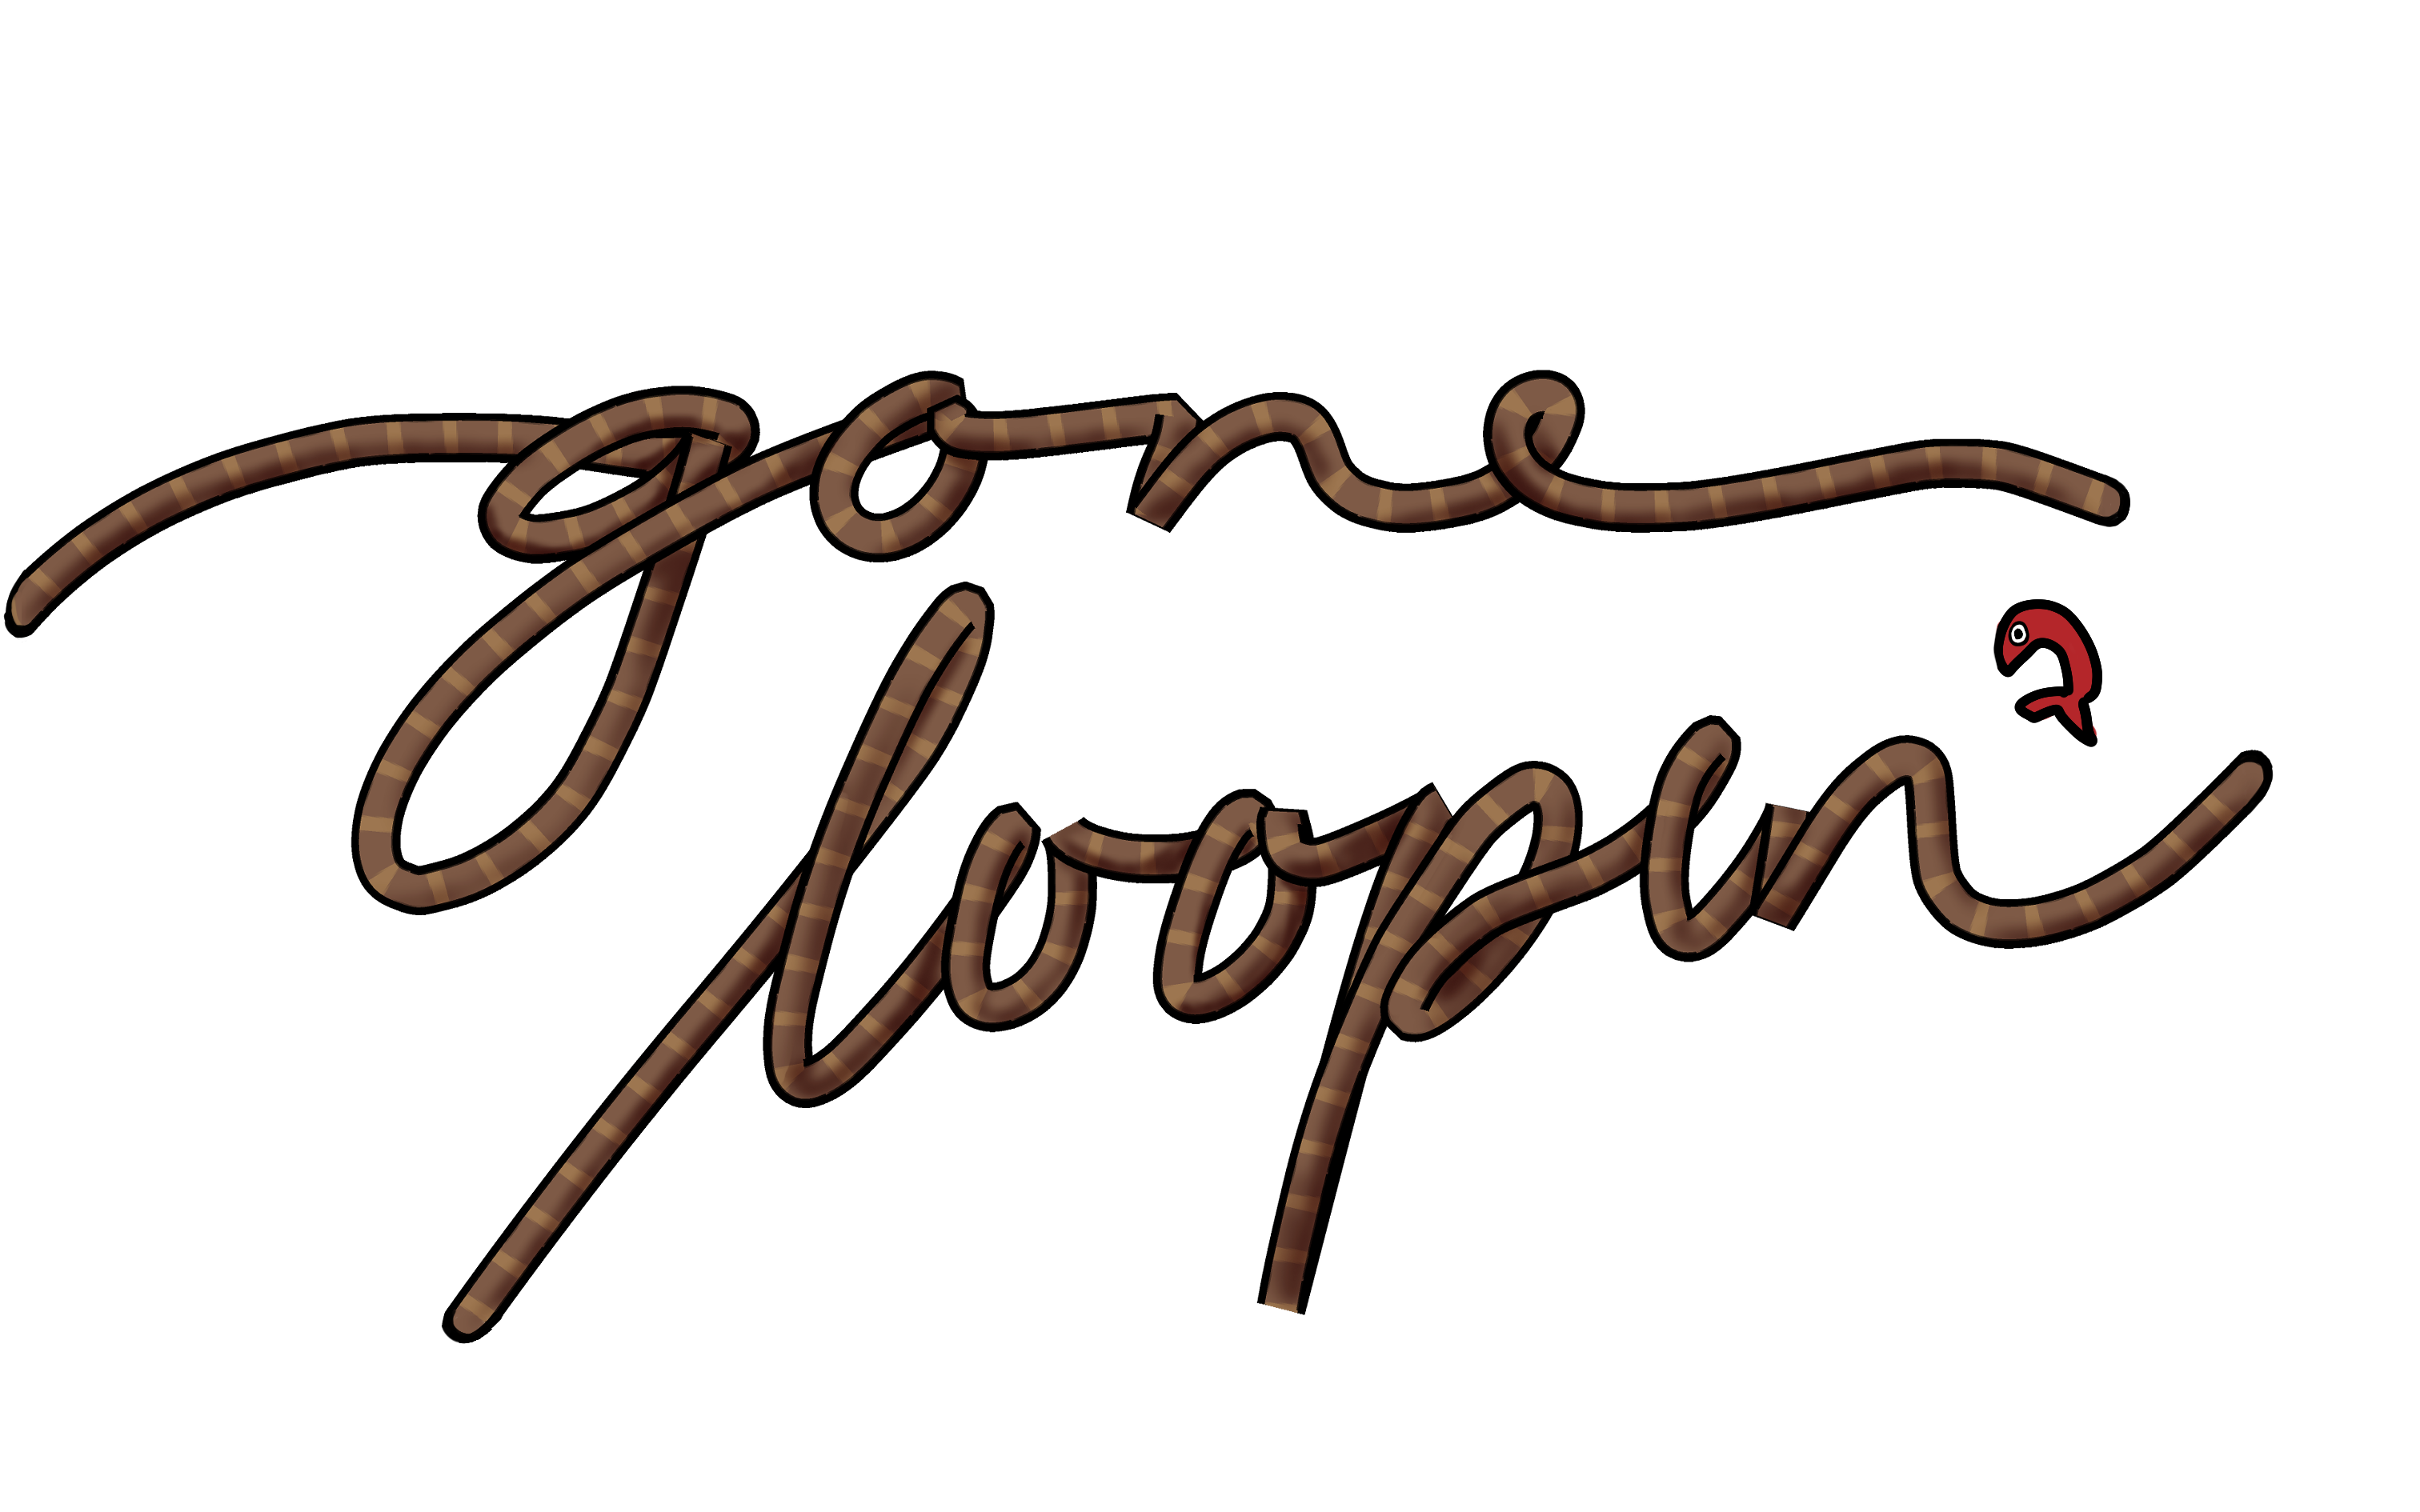 gone
loopin'